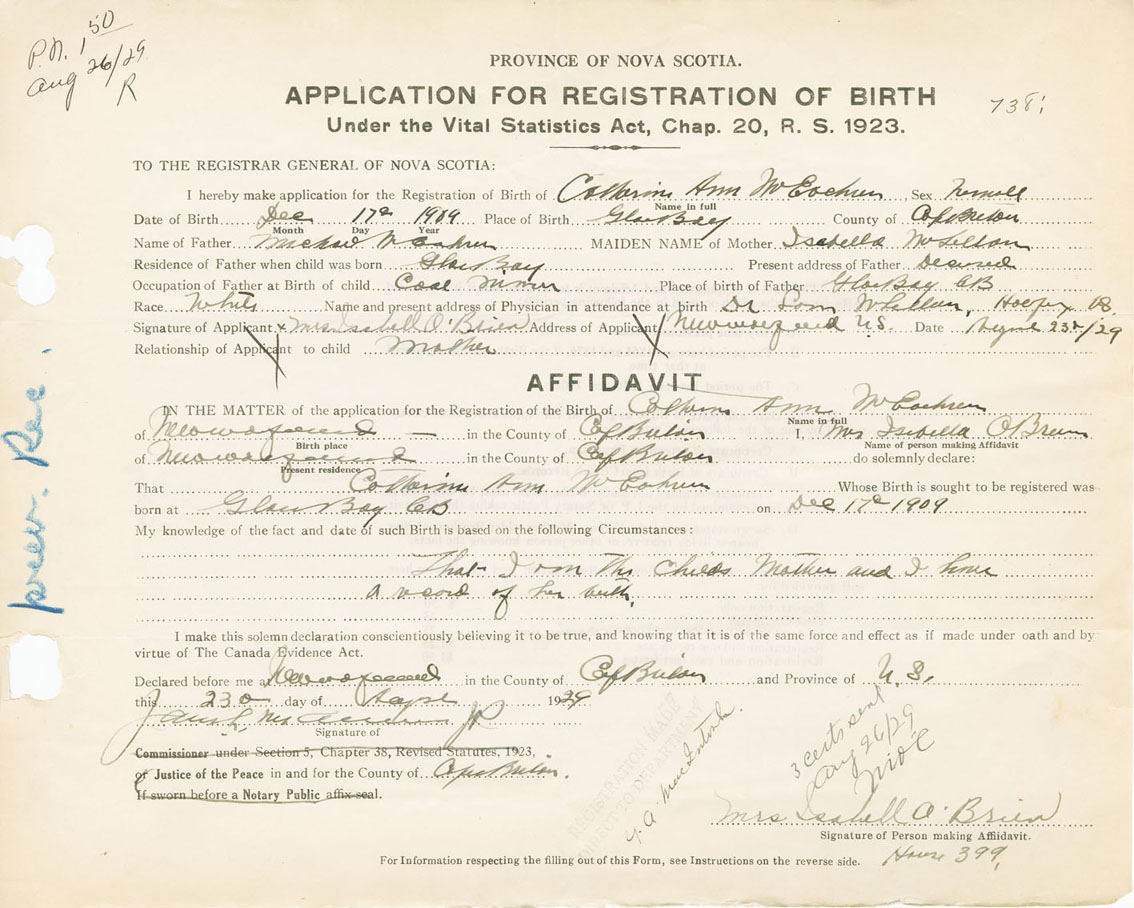 P.N. 1 50
Aug 26/29
R
PROVINCE OF NOVA SCOTIA.
APPLICATION FOR REGISTRATION OF BIRTH
738
Under the Vital Statistics Act, Chap. 20, R. S. 1923.
TO THE REGISTRAR GENERAL OF NOVA SCOTIA:
I hereby make application for the Registration of Birth of Catherine Ann McEachren Sex Female
Name in full
Date of Birth Dec 17th 1909 Place of Birth Glace Bay County of Cape Breton
Month Day Year
Name of Father Michael McEachren MAIDEN NAME of Mother Isabella McLellan
Residence of Father when child was born Glace Bay Present address of Father
Occupation of Father at Birth of child Coal Miner Place of birth of Father Glace Bay CB
Race White Name and present address of Physician in attendance at birth Dr
Signature of Applicant x Mrs Isabell O'Brien Address of Applicant Date 23rd/29
Relationship of Applicant to child Mother
AFFIDAVIT
IN THE MATTER of the application for the Registration of the Birth of Catherine Ann McEachren
Name in full
of in the County of Cape Breton I, Mrs Isabella O'Brien
Birth place Name of person making Affidavit
of in the County of Cape Breton do solemnly declare:
Present residence
That Catherine Ann McEachren Whose Birth is sought to be registered was
born at Glace Bay CB on Dec 17th 1909
My knowledge of the fact and date of such Birth is based on the following Circumstances:
That I am the Childs Mother and I have
a record of her birth.
I make this solemn declaration conscientiously believing it to be true, and knowing that it is of the same force and effect as if made under oath and by
virtue of The Canada Evidence Act.
Declared before me at in the County of Cape Breton and Province of N.S.
this 23rd day of 1929
JP
Signature of
Commissioner under Section 5, Chapter 38, Revised Statutes, 1923,
of Justice of the Peace in and for the County of Cape Breton.
If sworn before a Notary Public affix seal.
3 certs sent
Aug 26/29
Mrs Isabell O'Brien
Signature of Person making Affiidavit.
House 399
For Information respecting the filling out of this Form, see Instructions on the reverse side.